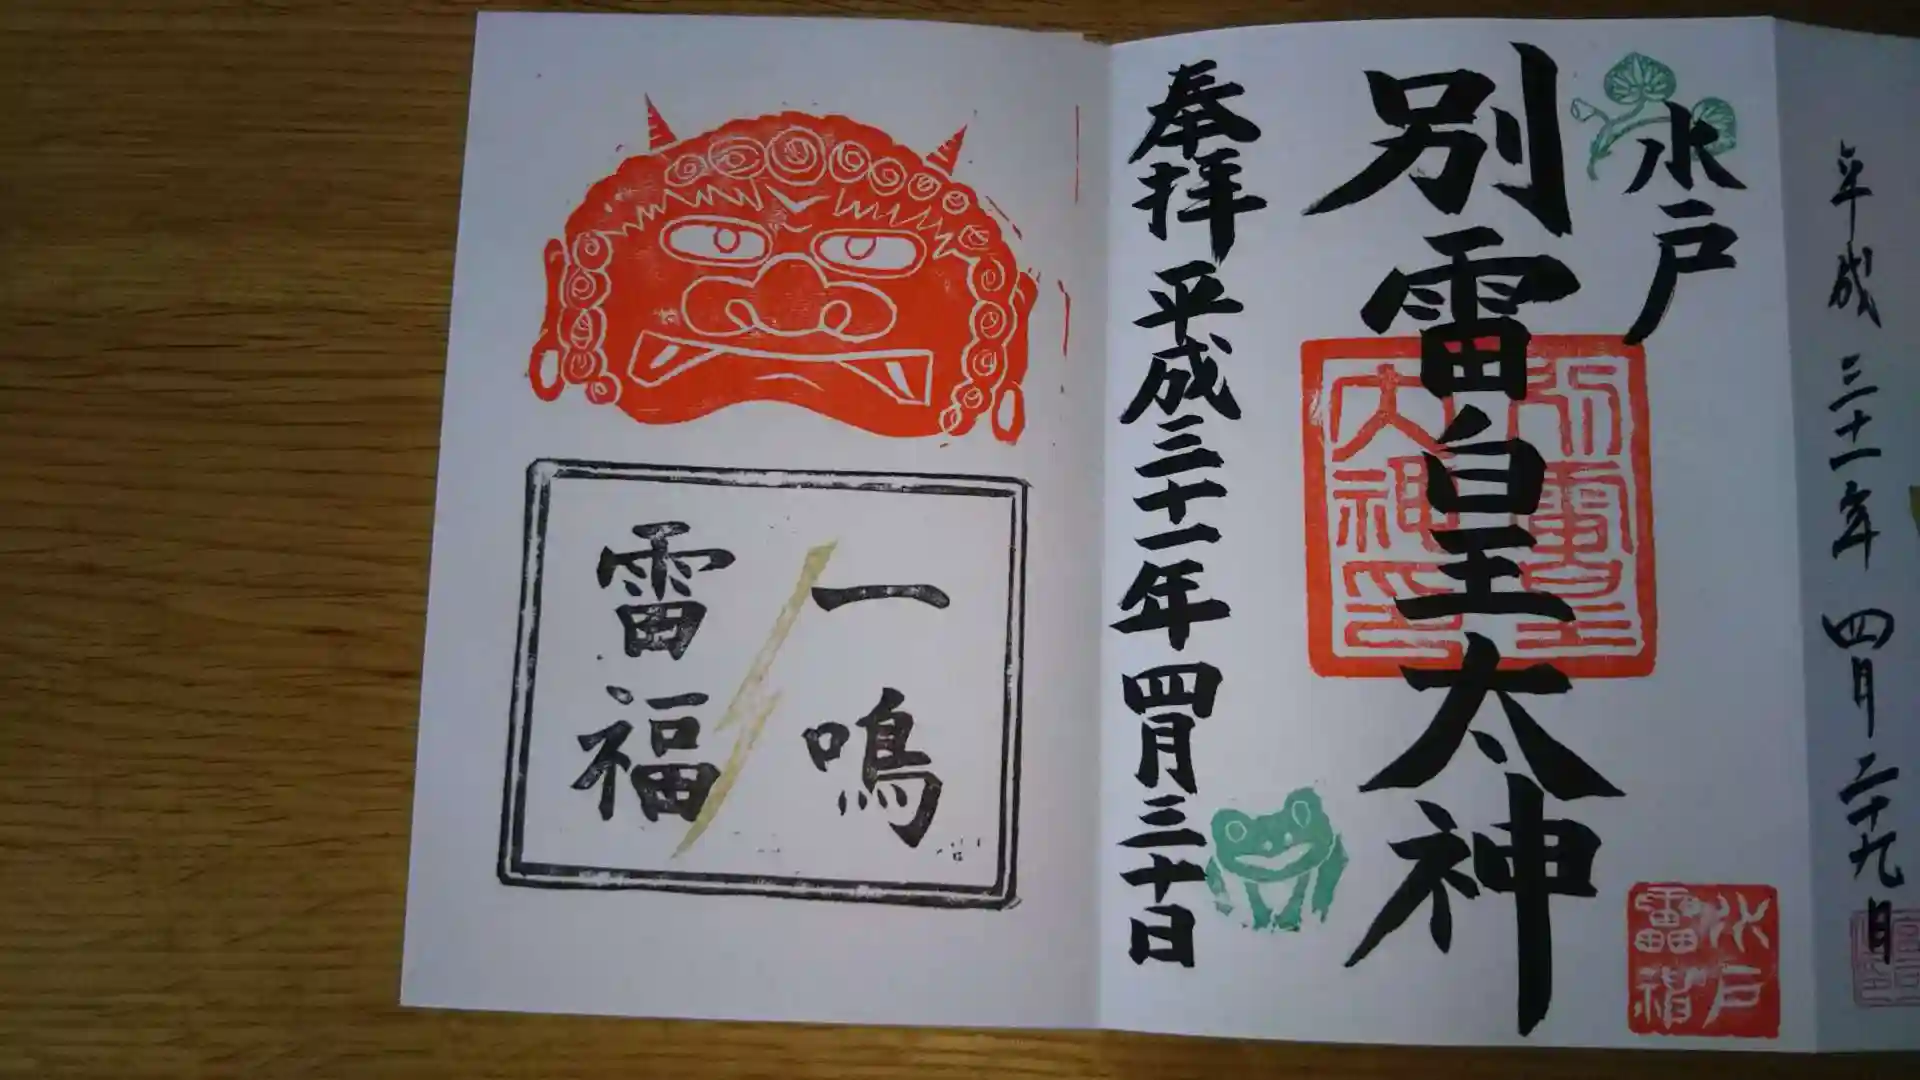 平成三十一年四月二十九日
水戸
別雷皇太神
奉拝 平成三十一年四月三十日
一鳴
雷福
水戸